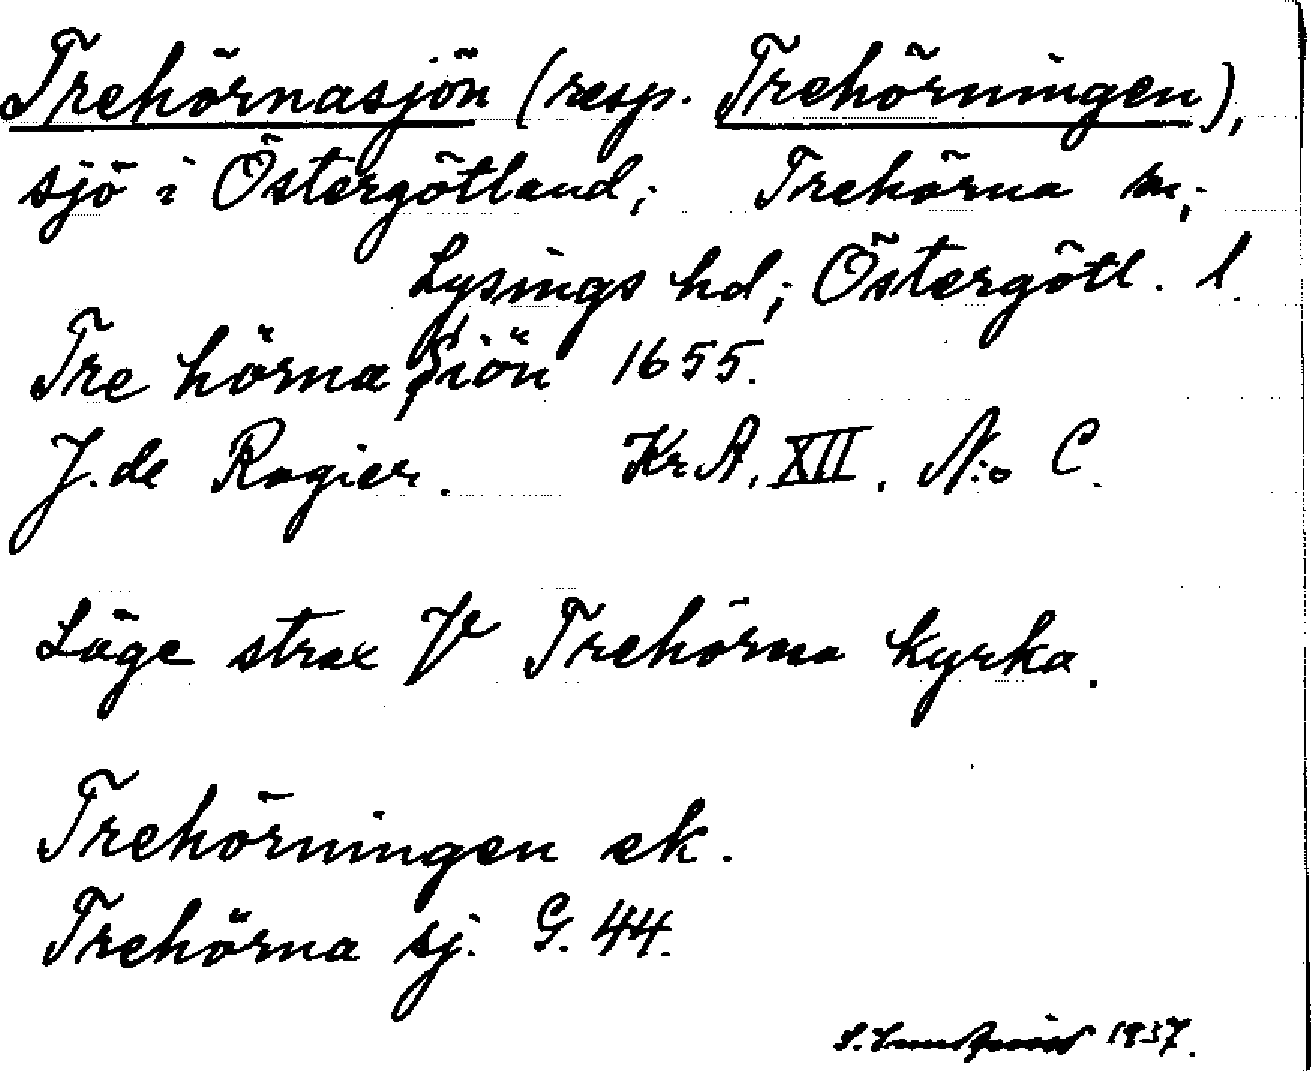 Trehörnasjön (resp. Trehörningen),
sjö i Östergötland; Trehörna sn,
Lysings hd; Östergötl. l.
Tre hörna Siön 1655.
J. de Rogier. Kr. A. XII. N:o C.
Läge strax V Trehörna kyrka.
Trehörningen ek.
Trehörna sj. G. 44.
S. 1937.